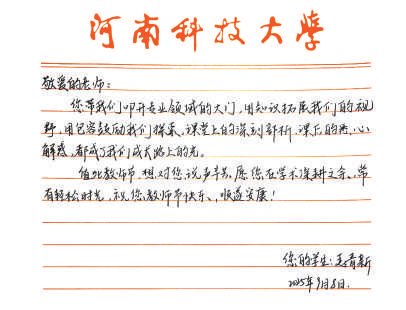 河南科技大学
敬爱的老师：
您带我们叩开专业领域的大门，用知识拓展我们的视
野，用包容鼓励我们探索，课堂上的深刻剖析，课后的热心
解惑，都成了我们成长路上的光。
值此教师节，想对您说声辛苦，愿您在学术深耕之余，常
有轻松时光，祝您教师节快乐、顺遂安康！
您的学生：
2025年9月8日.